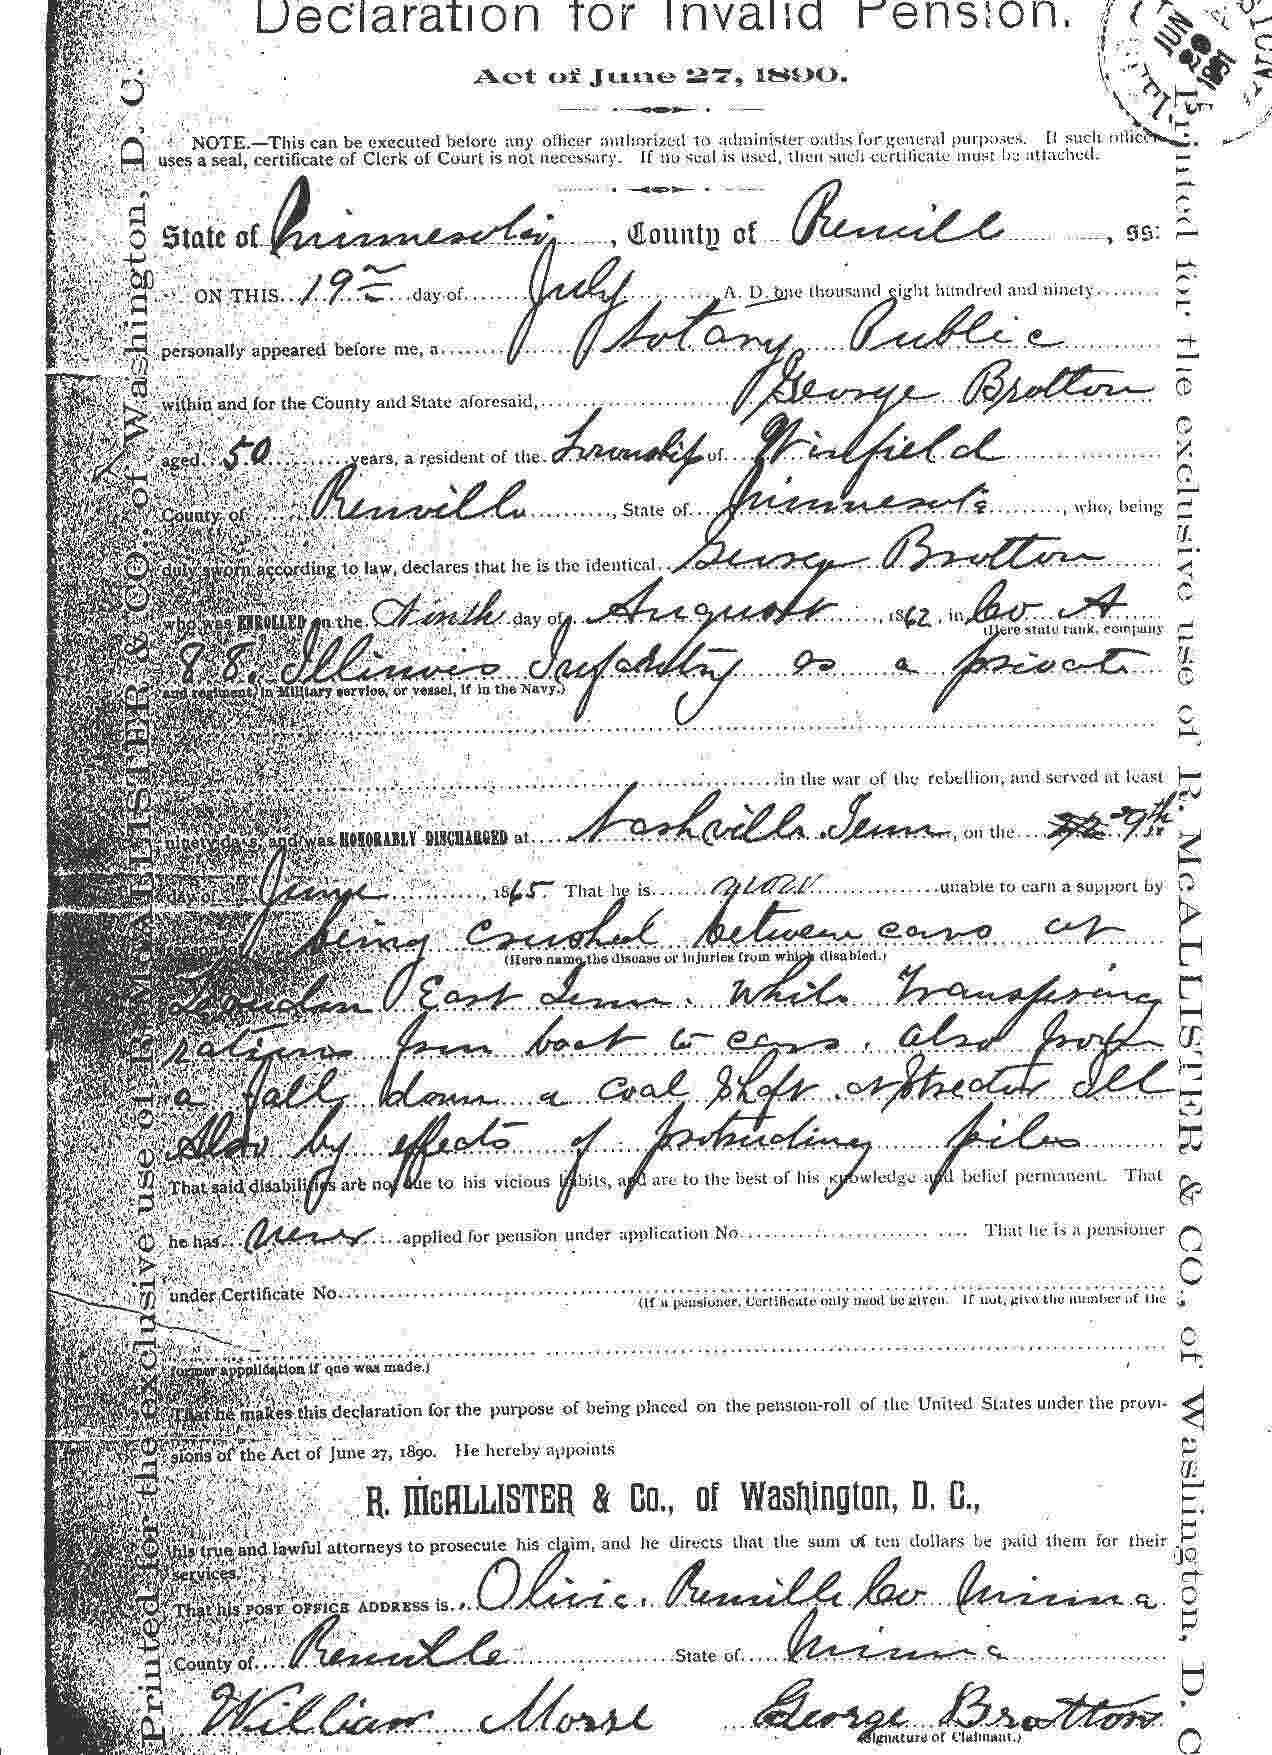 Declaration for Invalid Pension.
Act of June 27, 1890.
JUN
NOTE.—This can be executed before any officer authorized to administer oaths for general purposes. If such officer
uses a seal, certificate of Clerk of Court is not necessary. If no seal is used, then such certificate must be attached.
State of Minnesota, County of Renvill, ss:
ON THIS 19 day of July A. D. one thousand eight hundred and ninety
personally appeared before me, a Notary Public
within and for the County and State aforesaid, George Brotton
aged 50 years, a resident of the Township of Winfield
County of Renville, State of Minnesota, who, being
duly sworn according to law, declares that he is the identical George Brotton
who was ENROLLED on the Ninth day of August, 1862, in Co A
(Here state rank, company
88. Illinois Infantry as a private
and regiment, in Military service, or vessel, if in the Navy.)
in the war of the rebellion, and served at least
ninety days, and was HONORABLY DISCHARGED at Nashville Tenn, on the 9th
day of June, 1865. That he is unable to earn a support by
being crushed between cars at
(Here name the disease or injuries from which disabled.)
Loudon East Tenn. while Transfering
rations from boat to cars. also from
a fall down a coal Shaft at Streator Ill
Also by effects of protruding piles
That said disabilities are not due to his vicious habits, and are to the best of his knowledge and belief permanent. That
he has never applied for pension under application No. That he is a pensioner
under Certificate No.
(If a pensioner, Certificate only need be given. If not, give the number of the
former application if one was made.)
That he makes this declaration for the purpose of being placed on the pension-roll of the United States under the provi-
sions of the Act of June 27, 1890. He hereby appoints
R. McALLISTER & Co., of Washington, D. C.,
his true and lawful attorneys to prosecute his claim, and he directs that the sum of ten dollars be paid them for their
services.
That his POST OFFICE ADDRESS is Olivia, Renville Co Minna
County of Renville State of Minna
William Morse George Brotton
(Signature of Claimant.)
Printed for the exclusive use of R. McALLISTER & CO., of Washington, D. C.
Printed for the exclusive use of R. McALLISTER & CO., of Washington, D. C